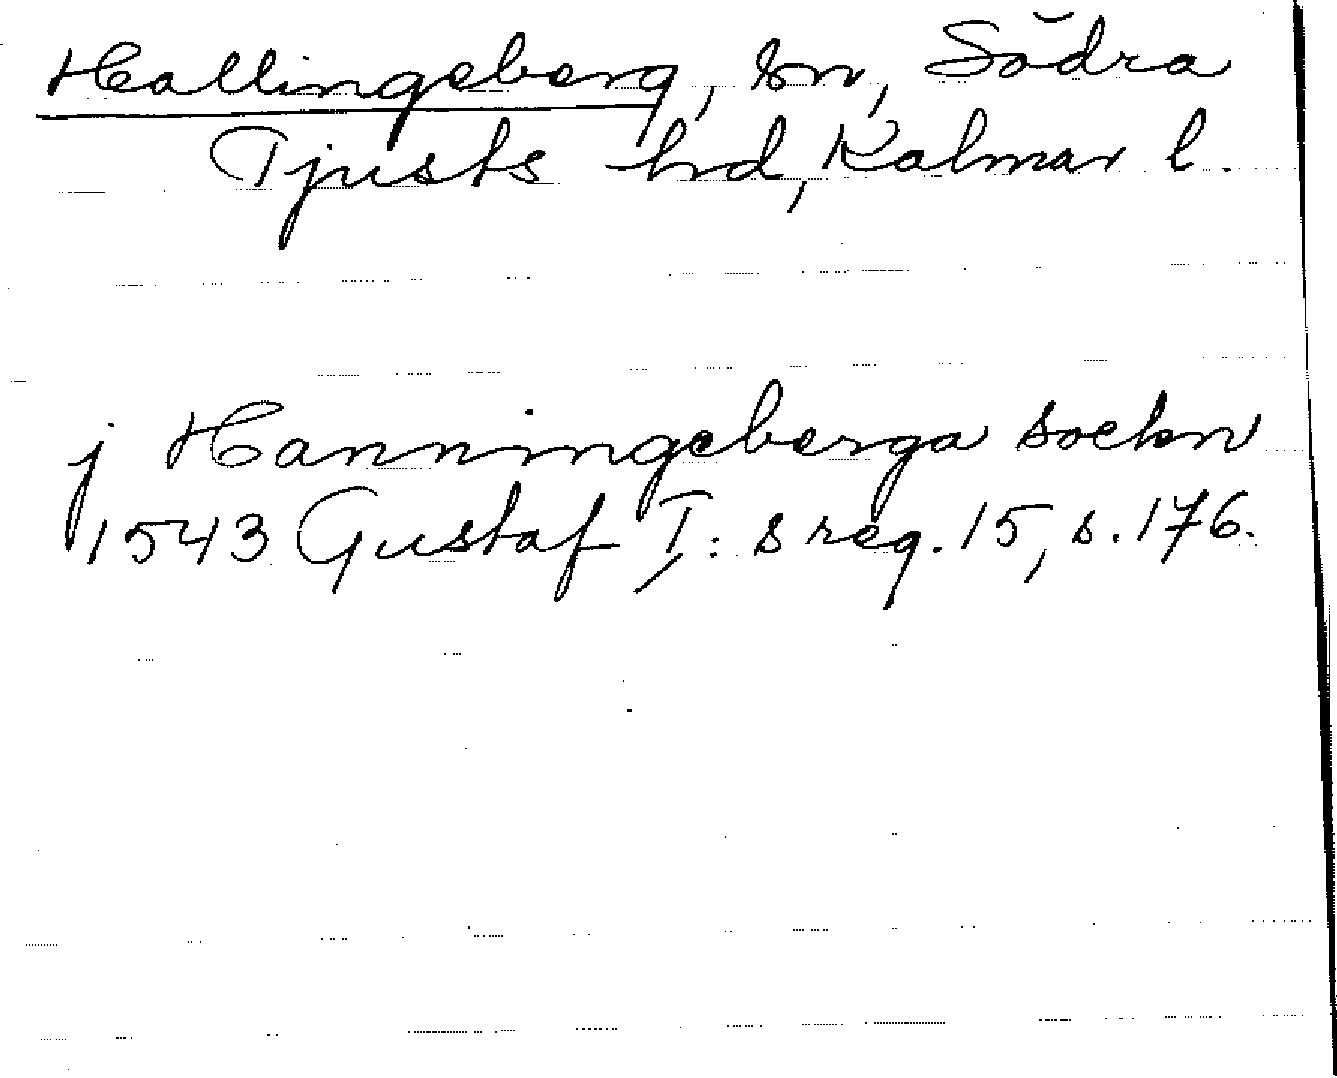 Hallingeberg, sn, Södra
Tjusts hd, Kalmar l.
j Hanningeberga sockn
1543 Gustaf I:s reg. 15, s. 176.